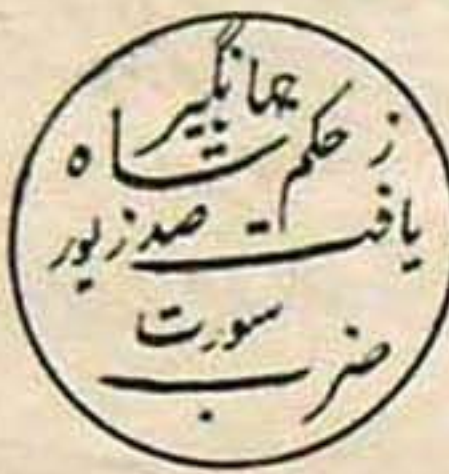 جهانگیر
ز حکم شاه
یافت صد زیور
سورت
ضرب